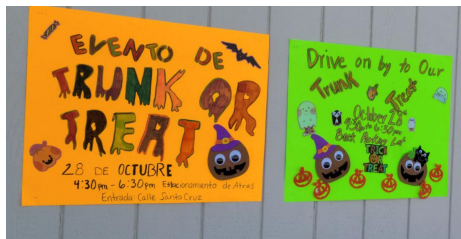 EVENTO DE
TRUNK OR
TREAT
28 DE OCTUBRE
4:30pm - 6:30pm Estacionamiento de Atras
Entrada: Calle Santa Cruz
Drive on by to Our
Trunk
Treat
October 28
4:30p to 6:30pm
Back Parking Lot
TRICK
OR
TREAT